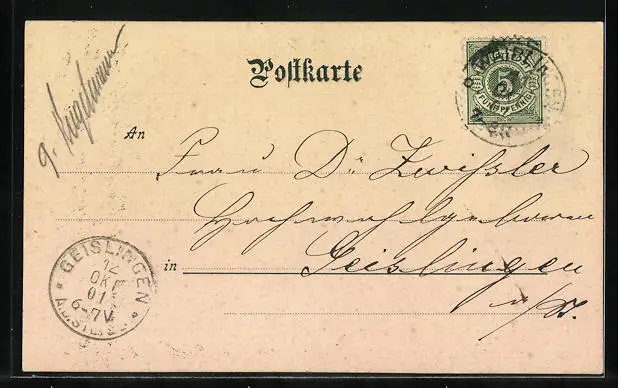 Postkarte
5
FÜNF PFENNIG
An
Frau Dr. Zwißler
Hochwohlgeboren
in Geislingen
a/St.
GEISLINGEN
12
OKT
01
6-7V
A.D. STEIGE